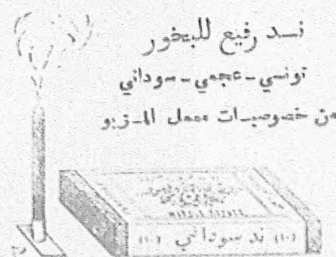 نـد رفيع للبخور
تونسي - عجمي - سوداني
من خصوصيات معمل المـزيو
(١٠) ند سوداني (١٠)